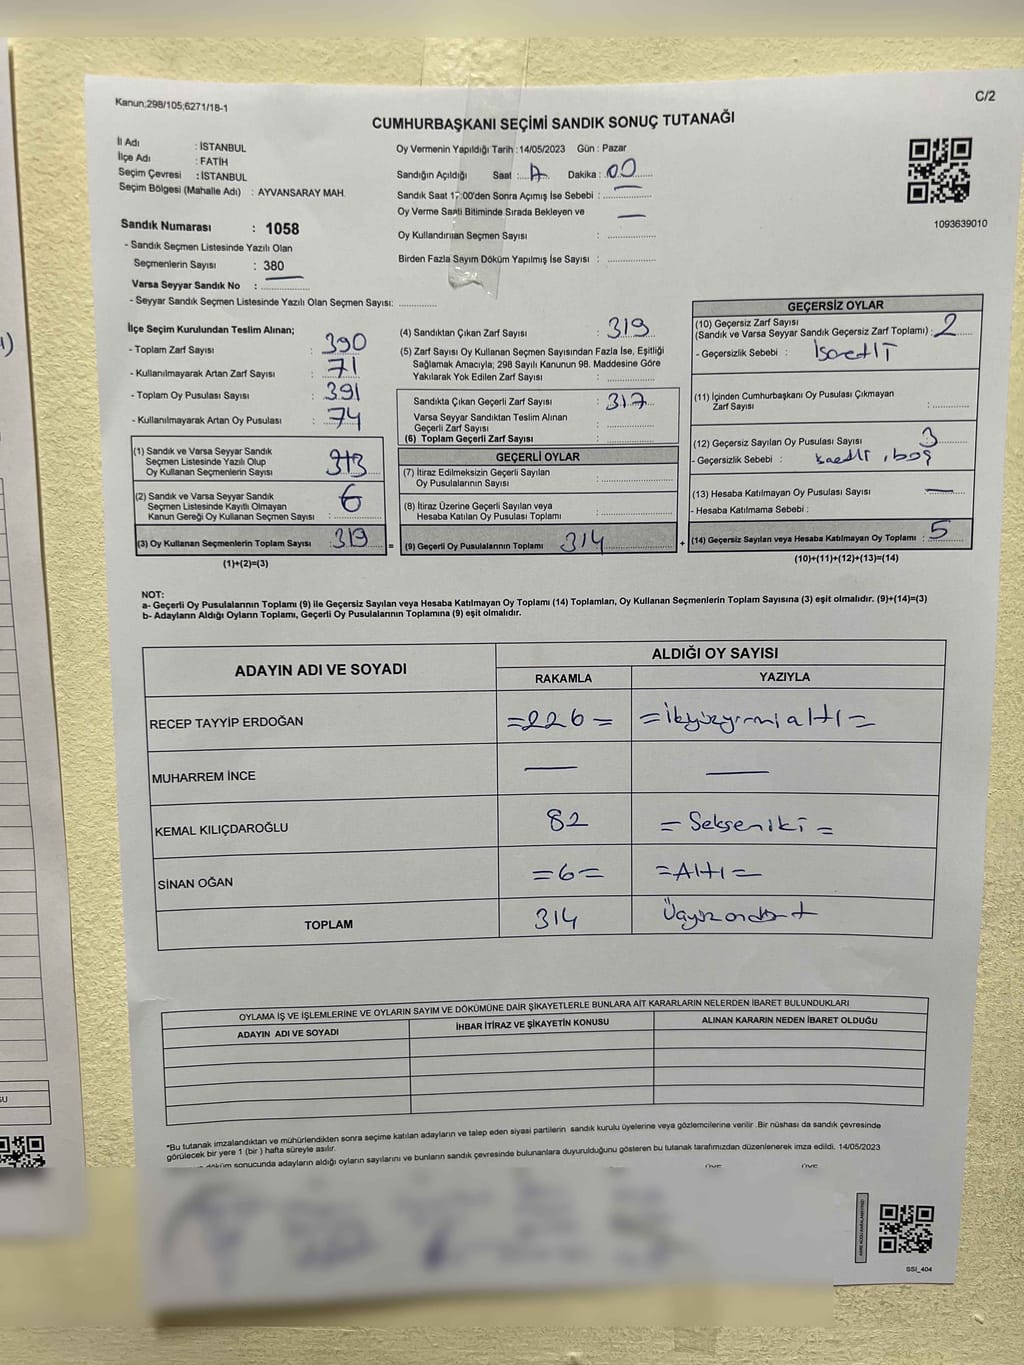 Kanun;298/105;6271/18-1
C/2
CUMHURBAŞKANI SEÇİMİ SANDIK SONUÇ TUTANAĞI
İl Adı : İSTANBUL
İlçe Adı : FATİH
Seçim Çevresi : İSTANBUL
Seçim Bölgesi (Mahalle Adı) : AYVANSARAY MAH.
Sandık Numarası : 1058
- Sandık Seçmen Listesinde Yazılı Olan
Seçmenlerin Sayısı : 380
Varsa Seyyar Sandık No :
- Seyyar Sandık Seçmen Listesinde Yazılı Olan Seçmen Sayısı:
Oy Vermenin Yapıldığı Tarih :14/05/2023 Gün : Pazar
Sandığın Açıldığı Saat : Dakika : 00
Sandık Saat 17:00'den Sonra Açımış İse Sebebi :
Oy Verme Saati Bitiminde Sırada Bekleyen ve —
Oy Kullandırılan Seçmen Sayısı :
Birden Fazla Sayım Döküm Yapılmış İse Sayısı :
1093639010
İlçe Seçim Kurulundan Teslim Alınan;
- Toplam Zarf Sayısı : 390
- Kullanılmayarak Artan Zarf Sayısı : 71
- Toplam Oy Pusulası Sayısı : 391
- Kullanılmayarak Artan Oy Pusulası : 74
(1) Sandık ve Varsa Seyyar Sandık
Seçmen Listesinde Yazılı Olup
Oy Kullanan Seçmenlerin Sayısı : 313
(2) Sandık ve Varsa Seyyar Sandık
Seçmen Listesinde Kayıtlı Olmayan
Kanun Gereği Oy Kullanan Seçmen Sayısı : 6
(3) Oy Kullanan Seçmenlerin Toplam Sayısı : 319
(1)+(2)=(3)
(4) Sandıktan Çıkan Zarf Sayısı : 319
(5) Zarf Sayısı Oy Kullanan Seçmen Sayısından Fazla İse, Eşitliği
Sağlamak Amacıyla; 298 Sayılı Kanunun 98. Maddesine Göre
Yakılarak Yok Edilen Zarf Sayısı :
Sandıkta Çıkan Geçerli Zarf Sayısı : 317
Varsa Seyyar Sandıktan Teslim Alınan
Geçerli Zarf Sayısı :
(6) Toplam Geçerli Zarf Sayısı :
GEÇERLİ OYLAR
(7) İtiraz Edilmeksizin Geçerli Sayılan
Oy Pusulalarının Sayısı :
(8) İtiraz Üzerine Geçerli Sayılan veya
Hesaba Katılan Oy Pusulası Toplamı :
=
(9) Geçerli Oy Pusulalarının Toplamı 314
+
GEÇERSİZ OYLAR
(10) Geçersiz Zarf Sayısı
(Sandık ve Varsa Seyyar Sandık Geçersiz Zarf Toplamı) : 2
- Geçersizlik Sebebi : İsaretli
(11) İçinden Cumhurbaşkanı Oy Pusulası Çıkmayan
Zarf Sayısı :
(12) Geçersiz Sayılan Oy Pusulası Sayısı : 3
- Geçersizlik Sebebi : , boş
(13) Hesaba Katılmayan Oy Pusulası Sayısı : —
- Hesaba Katılmama Sebebi :
(14) Geçersiz Sayılan veya Hesaba Katılmayan Oy Toplamı : 5
(10)+(11)+(12)+(13)=(14)
NOT:
a- Geçerli Oy Pusulalarının Toplamı (9) ile Geçersiz Sayılan veya Hesaba Katılmayan Oy Toplamı (14) Toplamları, Oy Kullanan Seçmenlerin Toplam Sayısına (3) eşit olmalıdır. (9)+(14)=(3)
b- Adayların Aldığı Oyların Toplamı, Geçerli Oy Pusulalarının Toplamına (9) eşit olmalıdır.
ADAYIN ADI VE SOYADI
ALDIĞI OY SAYISI
RAKAMLA YAZIYLA
RECEP TAYYİP ERDOĞAN =226= =ikiyüzyirmi altı=
MUHARREM İNCE — —
KEMAL KILIÇDAROĞLU 82 =Sekseniki=
SİNAN OĞAN =6= =Altı=
TOPLAM 314 Üçyüz ondört
OYLAMA İŞ VE İŞLEMLERİNE VE OYLARIN SAYIM VE DÖKÜMÜNE DAİR ŞİKAYETLERLE BUNLARA AİT KARARLARIN NELERDEN İBARET BULUNDUKLARI
ADAYIN ADI VE SOYADI İHBAR İTİRAZ VE ŞİKAYETİN KONUSU ALINAN KARARIN NEDEN İBARET OLDUĞU
*Bu tutanak imzalandıktan ve mühürlendikten sonra seçime katılan adayların ve talep eden siyasi partilerin sandık kurulu üyelerine veya gözlemcilerine verilir. Bir nüshası da sandık çevresinde
görülecek bir yere 1 (bir) hafta süreyle asılır.
döküm sonucunda adayların aldığı oyların sayılarını ve bunların sandık çevresinde bulunanlara duyurulduğunu gösteren bu tutanak tarafımızdan düzenlenerek imza edildi. 14/05/2023
SSI_404